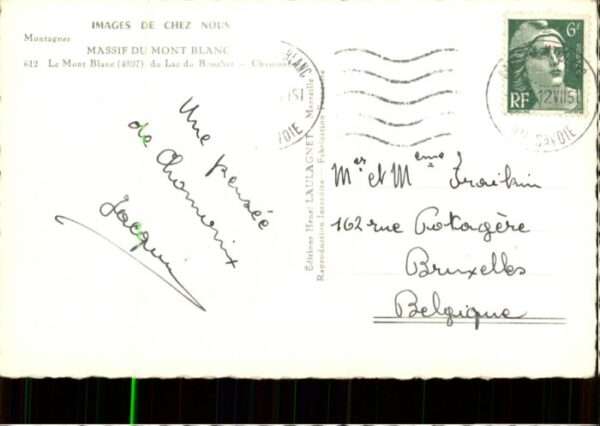 IMAGES DE CHEZ NOUS
Montagnes
MASSIF DU MONT BLANC
612 Le Mont Blanc (4807) du Lac du
Une pensée
de Chamonix
Jacquin
Editions Henri LAULAGNET - Marseille
Reproduction Interdite - Fabrication
BLANC
SAVOIE
6F
RF
12 VII 51
Mr et Mme
162 rue Potagère
Bruxelles
Belgique